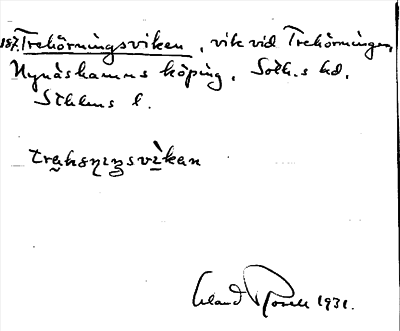 187. Trehörningsviken, vik vid Trehörningen,
Nynäshamns köping, Soth.s hd,
Sthlms l.
Erland Rosell 1931.